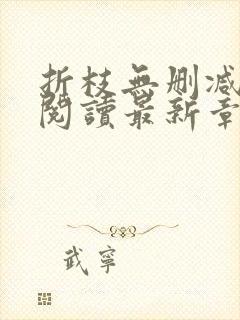 折枝無刪減
閱讀最新章
武寧